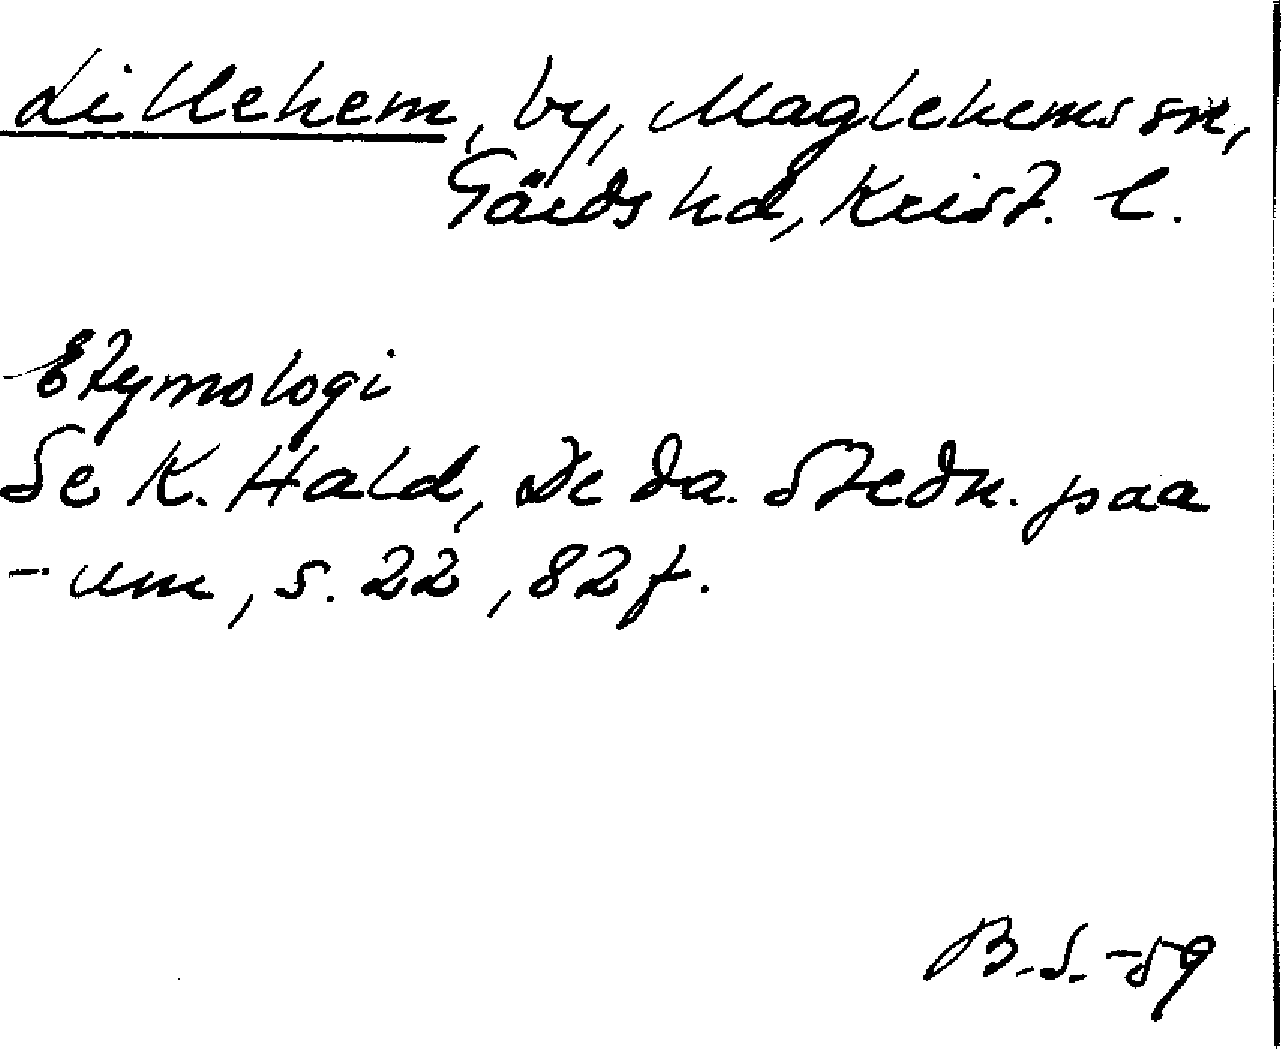 Lillehem, by, Maglehems sn,
Gärds hd, Krist. l.
Etymologi
Se K. Hald, De da. Stedn. paa
-um, s. 22, 82 f.
B.S. -59